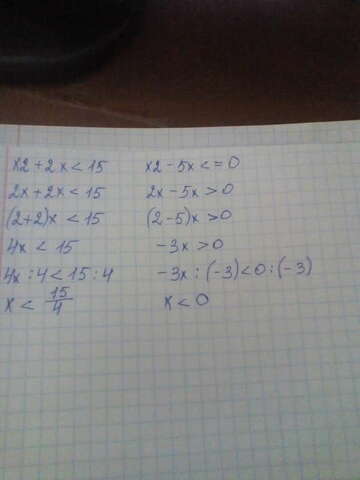 x2+2x<15
2x+2x<15
(2+2)x<15
4x<15
4x:4<15:4
x<15/4
x2-5x<=0
2x-5x>0
(2-5)x>0
-3x>0
-3x:(-3)<0:(-3)
x<0